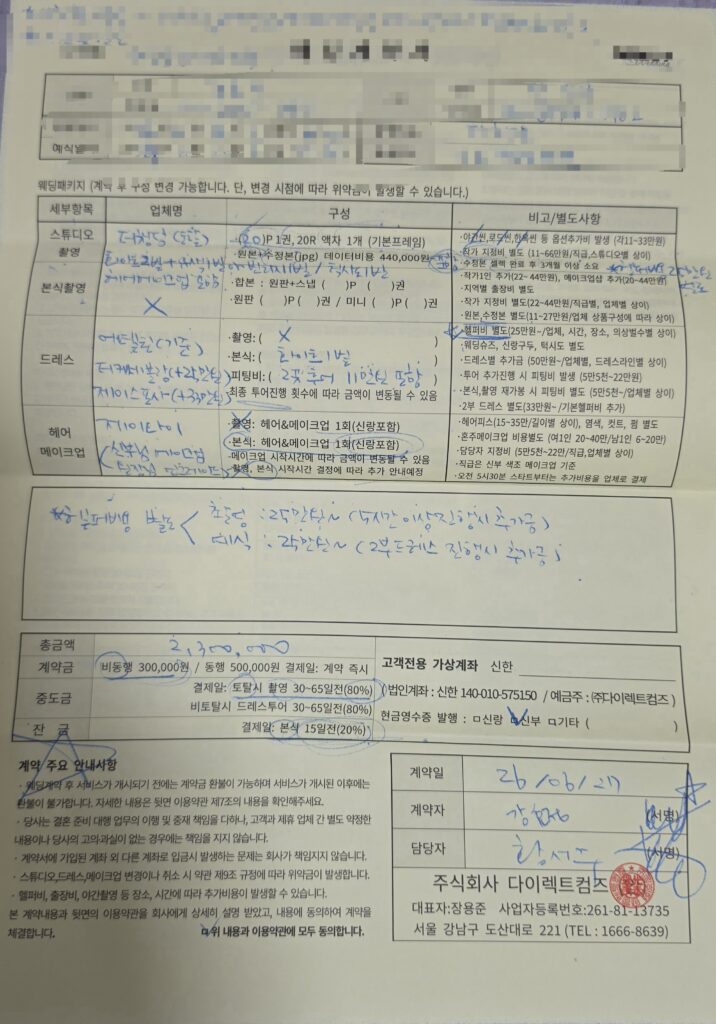 예식일
웨딩패키지 (계약 후 구성 변경 가능합니다. 단, 변경 시점에 따라 위약금이 발생할 수 있습니다.)
세부항목 업체명 구성 비고/별도사항
스튜디오 촬영
(20)P 1권, 20R 액자 1개 (기본프레임)
·원본+수정본(jpg) 데이터비용 440,000원
·야간씬,로드씬,한옥씬 등 옵션추가비 발생 (각11~33만원)
·작가 지정비 별도 (11~66만원/직급,스튜디오별 상이)
·수정본 셀렉 완료 후 3개월 이상 소요
본식촬영
X
·합본 : 원판+스냅 ( )P ( )권
·원판 ( )P( )권 / 미니 ( )P( )권
·작가1인 추가(22~44만원), 메이크업샵 추가(20~44만원)
·지역별 출장비 별도
·작가 지정비 별도(22~44만원/직급별, 업체별 상이)
·원본,수정본 별도(11~27만원/업체 상품구성에 따라 상이)
드레스
·촬영: ( X )
·본식: ( 화이트 1벌 )
·피팅비: ( 2곳 투어 11만원 포함 )
·최종 투어진행 횟수에 따라 금액이 변동될 수 있음
·헬퍼비 별도(25만원~/업체, 시간, 장소, 의상벌수별 상이)
·웨딩슈즈, 신랑구두, 턱시도 별도
·드레스별 추가금 (50만원~/업체별, 드레스라인별 상이)
·투어 추가진행 시 피팅비 발생 (5만5천~22만원)
·본식,촬영 재가봉 시 피팅비 발생 (5만5천~/업체별 상이)
·2부 드레스 별도(33만원~ /기본헬퍼비 추가)
헤어 메이크업
·촬영: 헤어&메이크업 1회(신랑포함)
·본식: 헤어&메이크업 1회(신랑포함)
·메이크업 시작시간에 따라 금액이 변동될 수 있음
·촬영, 본식 시작시간 결정에 따라 추가 안내예정
·헤어피스(15~35만/길이별 상이), 염색, 컷트, 펌 별도
·혼주메이크업 비용별도 (여1인 20~40만/남1인 6~20만)
·담당자 지정비 (5만5천~22만/직급,업체별 상이)
·직급은 신부 색조 메이크업 기준
·오전 5시30분 스타트부터는 추가비용을 업체로 결제
*헬퍼비용 별도 < 촬영 : 25만원~ (5시간 이상 진행시 추가금)
예식 : 25만원~ (2부드레스 진행시 추가금)
총금액 2,300,000
계약금 비동행 300,000원 / 동행 500,000원 결제일: 계약 즉시
중도금 결제일: 토탈시 촬영 30~65일전(80%)
비토탈시 드레스투어 30~65일전(80%)
잔 금 결제일: 본식 15일전(20%)
고객전용 가상계좌 신한
( 법인계좌 : 신한 140-010-575150 / 예금주 : ㈜다이렉트컴즈 )
현금영수증 발행 : □신랑 ☑신부 □기타 ( )
계약 주요 안내사항
· 웨딩계약 후 서비스가 개시되기 전에는 계약금 환불이 가능하며 서비스가 개시된 이후에는
환불이 불가합니다. 자세한 내용은 뒷면 이용약관 제7조의 내용을 확인해주세요.
· 당사는 결혼 준비 대행 업무의 이행 및 중재 책임을 다하나, 고객과 제휴 업체 간 별도 약정한
내용이나 당사의 고의과실이 없는 경우에는 책임을 지지 않습니다.
· 계약서에 기입된 계좌 외 다른 계좌로 입금시 발생하는 문제는 회사가 책임지지 않습니다.
· 스튜디오,드레스,메이크업 변경이나 취소 시 약관 제9조 규정에 따라 위약금이 발생합니다.
· 헬퍼비, 출장비, 야간촬영 등 장소, 시간에 따라 추가비용이 발생할 수 있습니다.
본 계약내용과 뒷면의 이용약관을 회사에게 상세히 설명 받았고, 내용에 동의하여 계약을
체결합니다. ☑위 내용과 이용약관에 모두 동의합니다.
계약일 26/06/27
계약자 (서명)
담당자 (서명)
주식회사 다이렉트컴즈
대표자:장용준 사업자등록번호:261-81-13735
서울 강남구 도산대로 221 (TEL : 1666-8639)